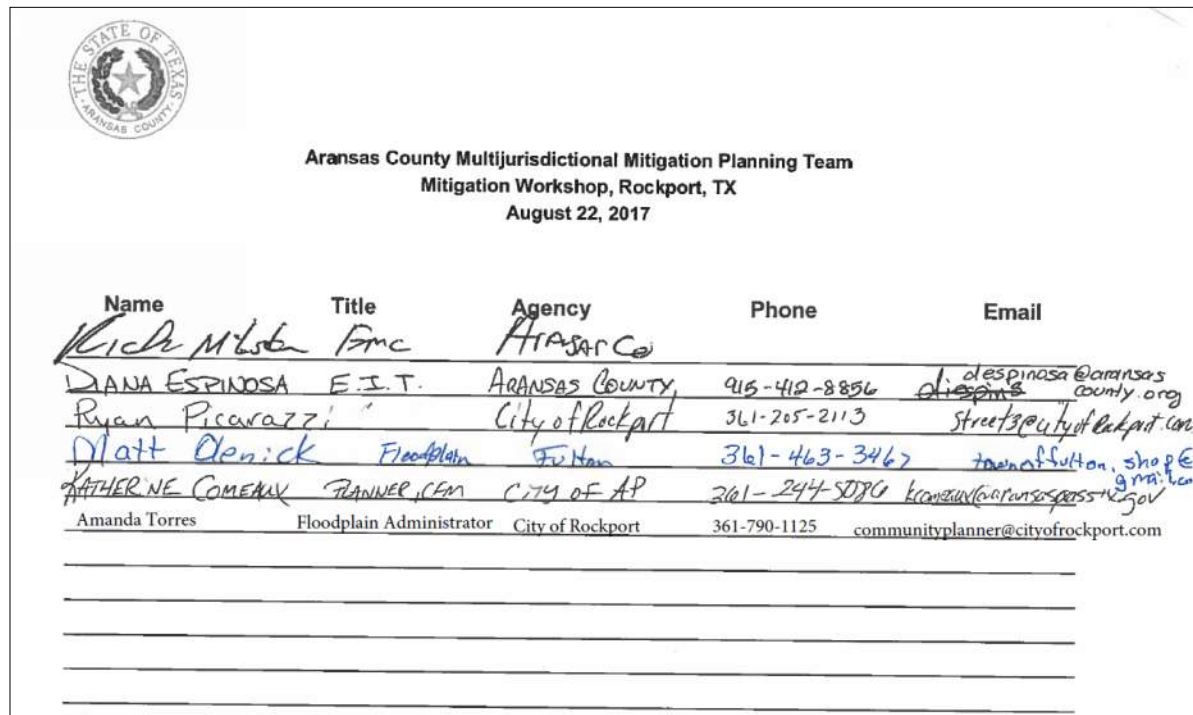 THE STATE OF TEXAS
ARANSAS COUNTY
Aransas County Multijurisdictional Mitigation Planning Team
Mitigation Workshop, Rockport, TX
August 22, 2017
Name Title Agency Phone Email
Rick EMC
DIANA ESPINOSA E.I.T. ARANSAS COUNTY, 915-412-8856 despinosa@aransas
county.org
Ryan Picarazzi City of Rockport 361-205-2113 Street3@cityofRockport.com
Matt Floodplain Fulton 361-463-3467 townoffulton.shop@
gmail.com
KATHERINE COMEAUX PLANNER, CFM CITY OF AP 361-244-5086 kcomeaux@aransaspasstx.gov
Amanda Torres Floodplain Administrator City of Rockport 361-790-1125 communityplanner@cityofrockport.com